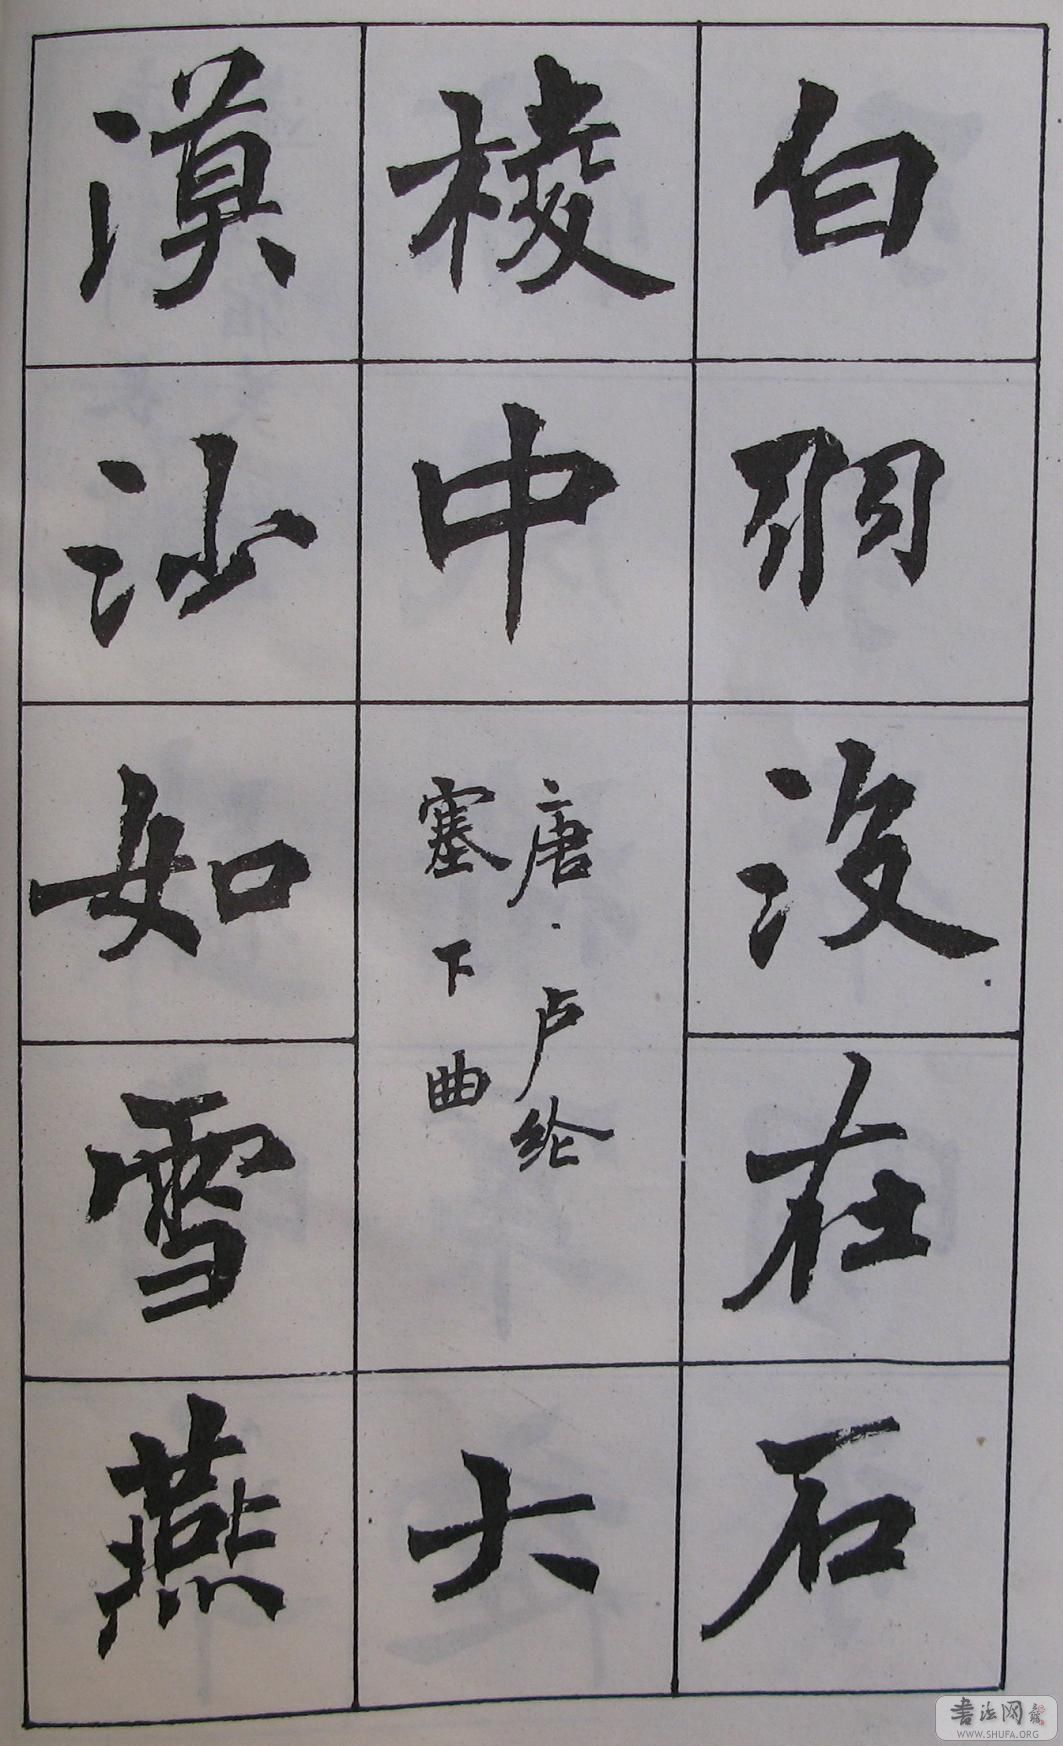 白羽没在石
棱中
唐·卢纶
塞下曲
大
漠沙如雪燕
书法网
WWW.SHUFA.ORG